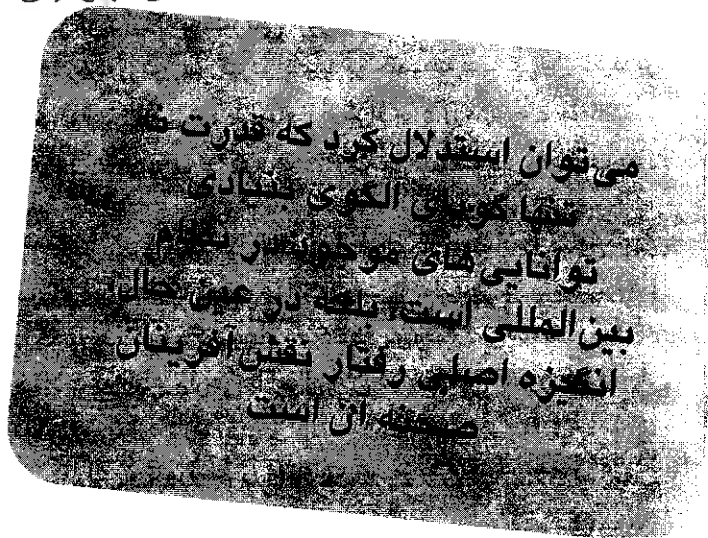 می‌توان استدلال کرد که قدرت نه
تنها گویای الگوی بنیادی
توانایی‌های موجود در نظام
بین‌المللی است، بلکه در عین حال،
انگیزه اصلی رفتار نقش‌آفرینان
صحنه آن است